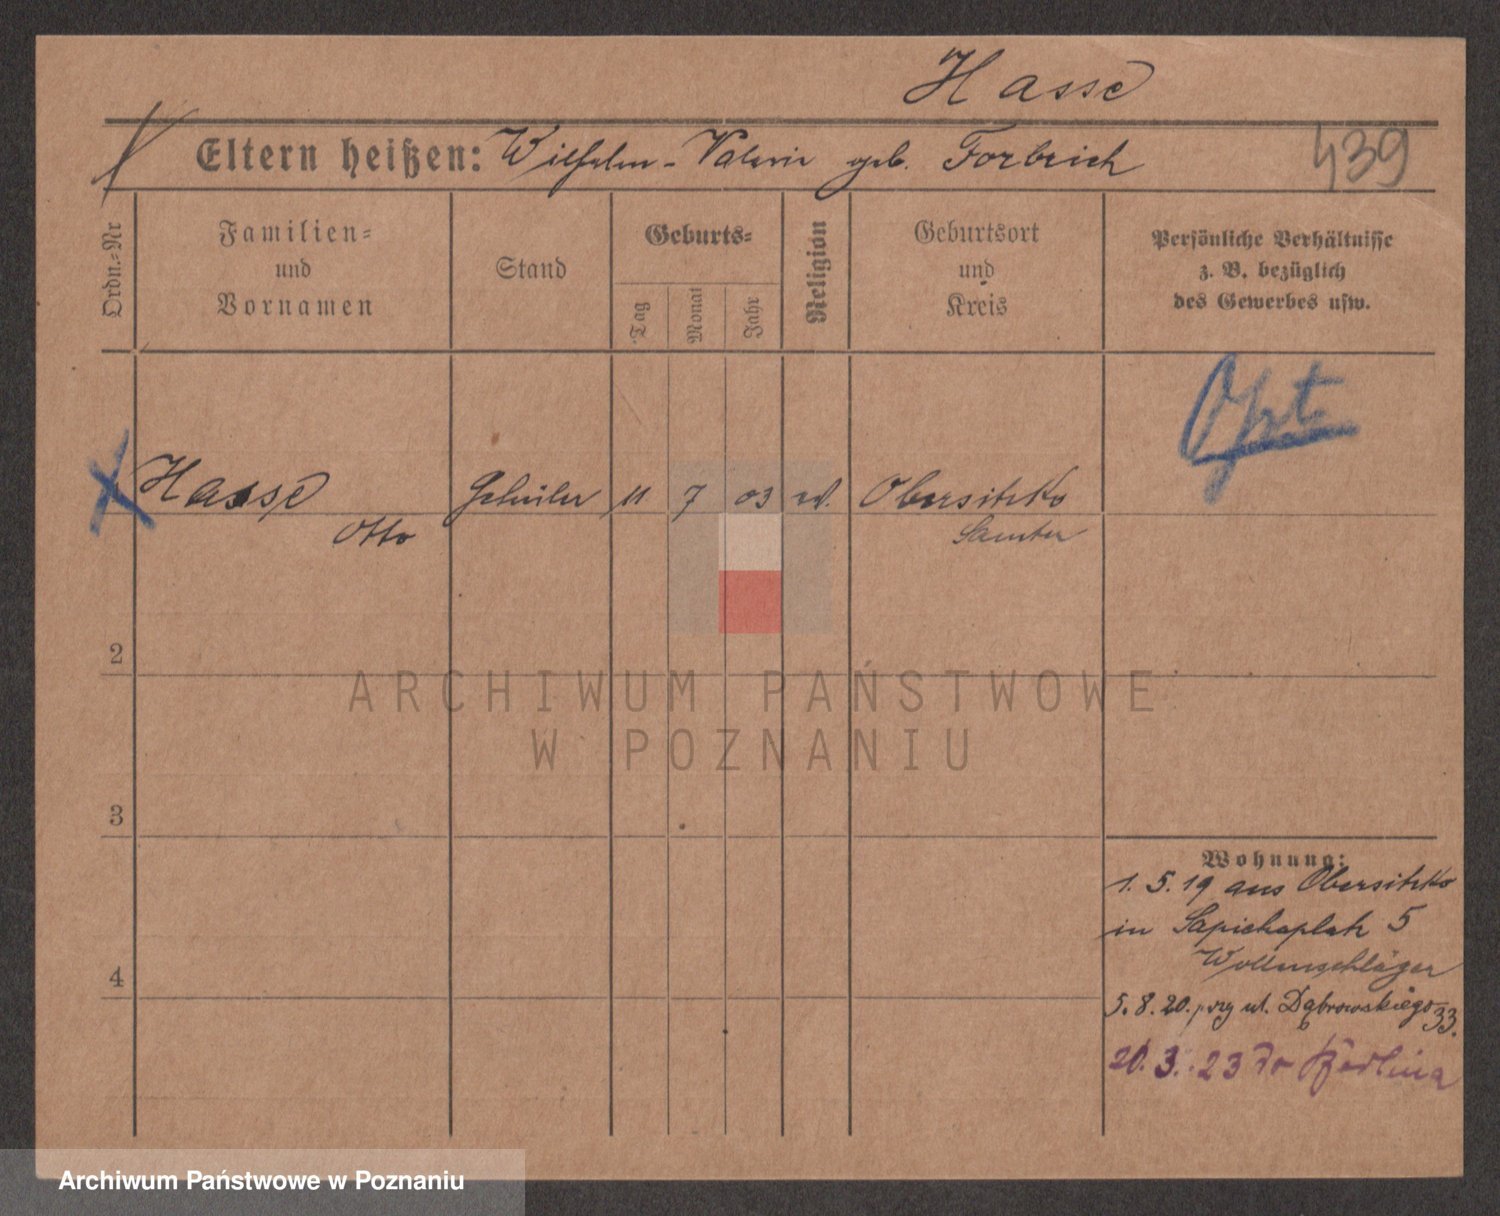 Hasse
Eltern heißen: Wilhelm - Valerie geb. Forbrich
439
Ordn.-Nr
Familien-
und
Vornamen
Stand
Geburts-
Tag
Monat
Jahr
Religion
Geburtsort
und
Kreis
Persönliche Verhältnisse
z. B. bezüglich
des Gewerbes usw.
Opt.
Hasse Schüler 11 7 03 ev. Obersitzko
Otto Samter
2
3
4
ARCHIWUM PAŃSTWOWE
W POZNANIU
Wohnung:
1. 5. 19 aus Obersitzko
in Sapiehaplatz 5
Wollenschläger
5. 8. 20. przy ul. Dąbrowskiego 33.
20. 3. 23 do Berlina
Archiwum Państwowe w Poznaniu